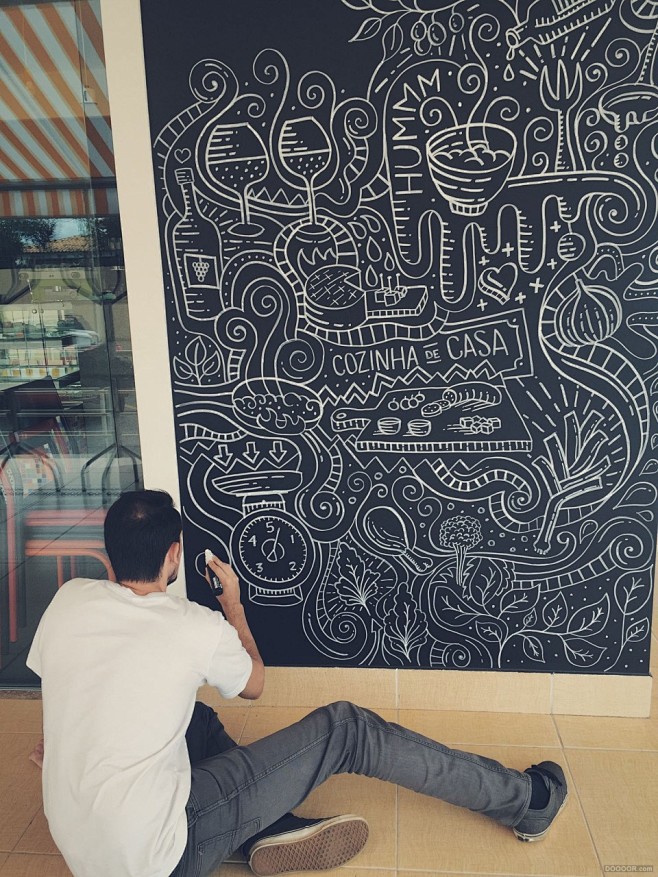 HUMMM
COZINHA DE CASA
5
4 1
3 2